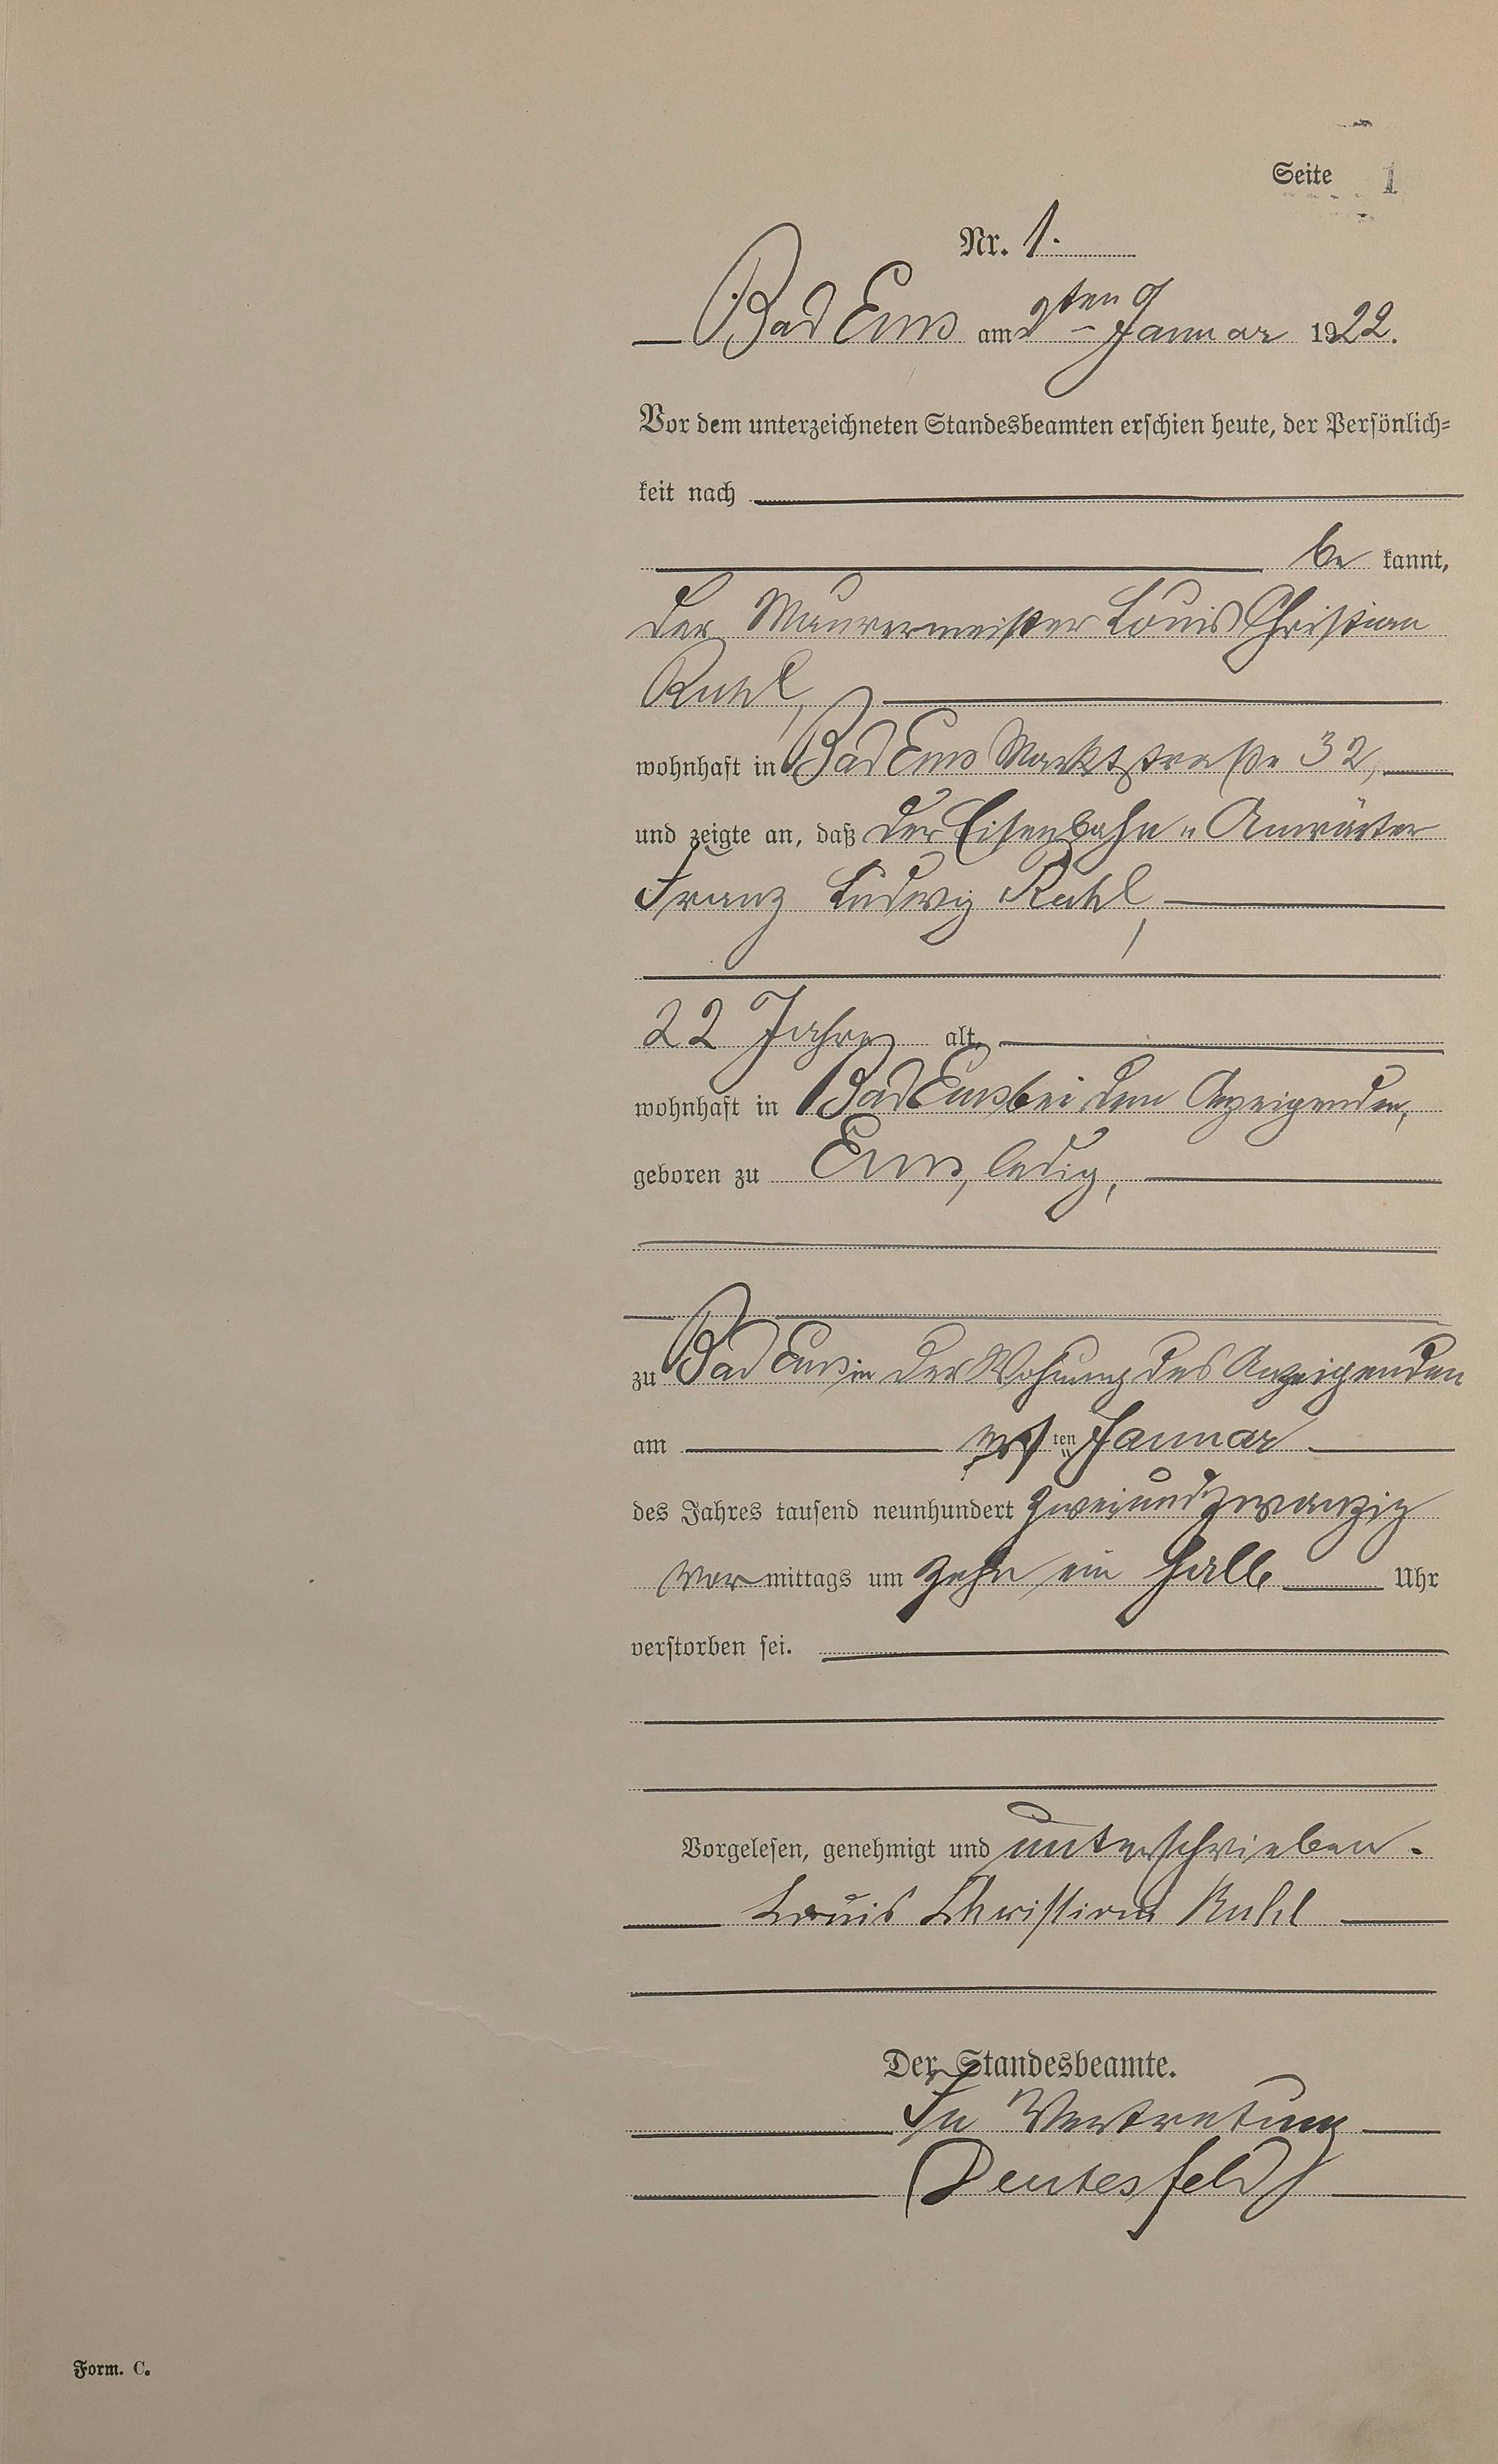 Seite 1
Nr. 1.
Bad Ems am 2ten Januar 1922.
Vor dem unterzeichneten Standesbeamten erschien heute, der Persönlich-
keit nach
be kannt,
der Maurermeister Louis Christian
Ruhl,
wohnhaft in Bad Ems Marktstraße 32,
und zeigte an, daß der Eisenbahn-Anwärter
Franz Ludwig Ruhl,
22 Jahre alt,
wohnhaft in Bad Ems bei dem Anzeigenden,
geboren zu Ems, ledig,
zu Bad Ems in der Wohnung des Anzeigenden
am ersten Januar
des Jahres tausend neunhundert zweiundzwanzig
vor mittags um zehn ein halb Uhr
verstorben sei.
Vorgelesen, genehmigt und unterschrieben.
Louis Christian Ruhl
Der Standesbeamte.
In Vertretung
Deutesfeld
Form. C.